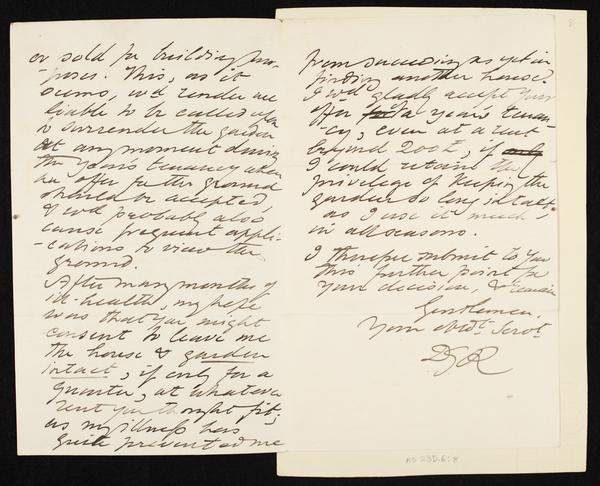 or sold for building pur-
-poses. This, as it
seems, wd render me
liable to be called upon
to surrender the garden
at any moment during
the year's tenancy when
an offer for the ground
should be accepted,
& wd probably also
cause frequent appli-
-cations to view the
ground.
After many months of
ill-health, my hope
was that you might
consent to leave me
the house & garden
intact, if only for a
quarter, at whatever
rent you thought fit;
as my illness has
quite prevented me
from succeeding as yet in
finding another house.
I wd gladly accept your
offer for a year's tenan-
cy, even at a rent
beyond 200£, if only
I could retain the
privilege of keeping the
garden so long intact,
as I use it much
in all seasons.
I therefore submit to you
this further point for
your decision, & remain
Gentlemen,
Your obedt Servt
DGR
MS 23D.6:8
8